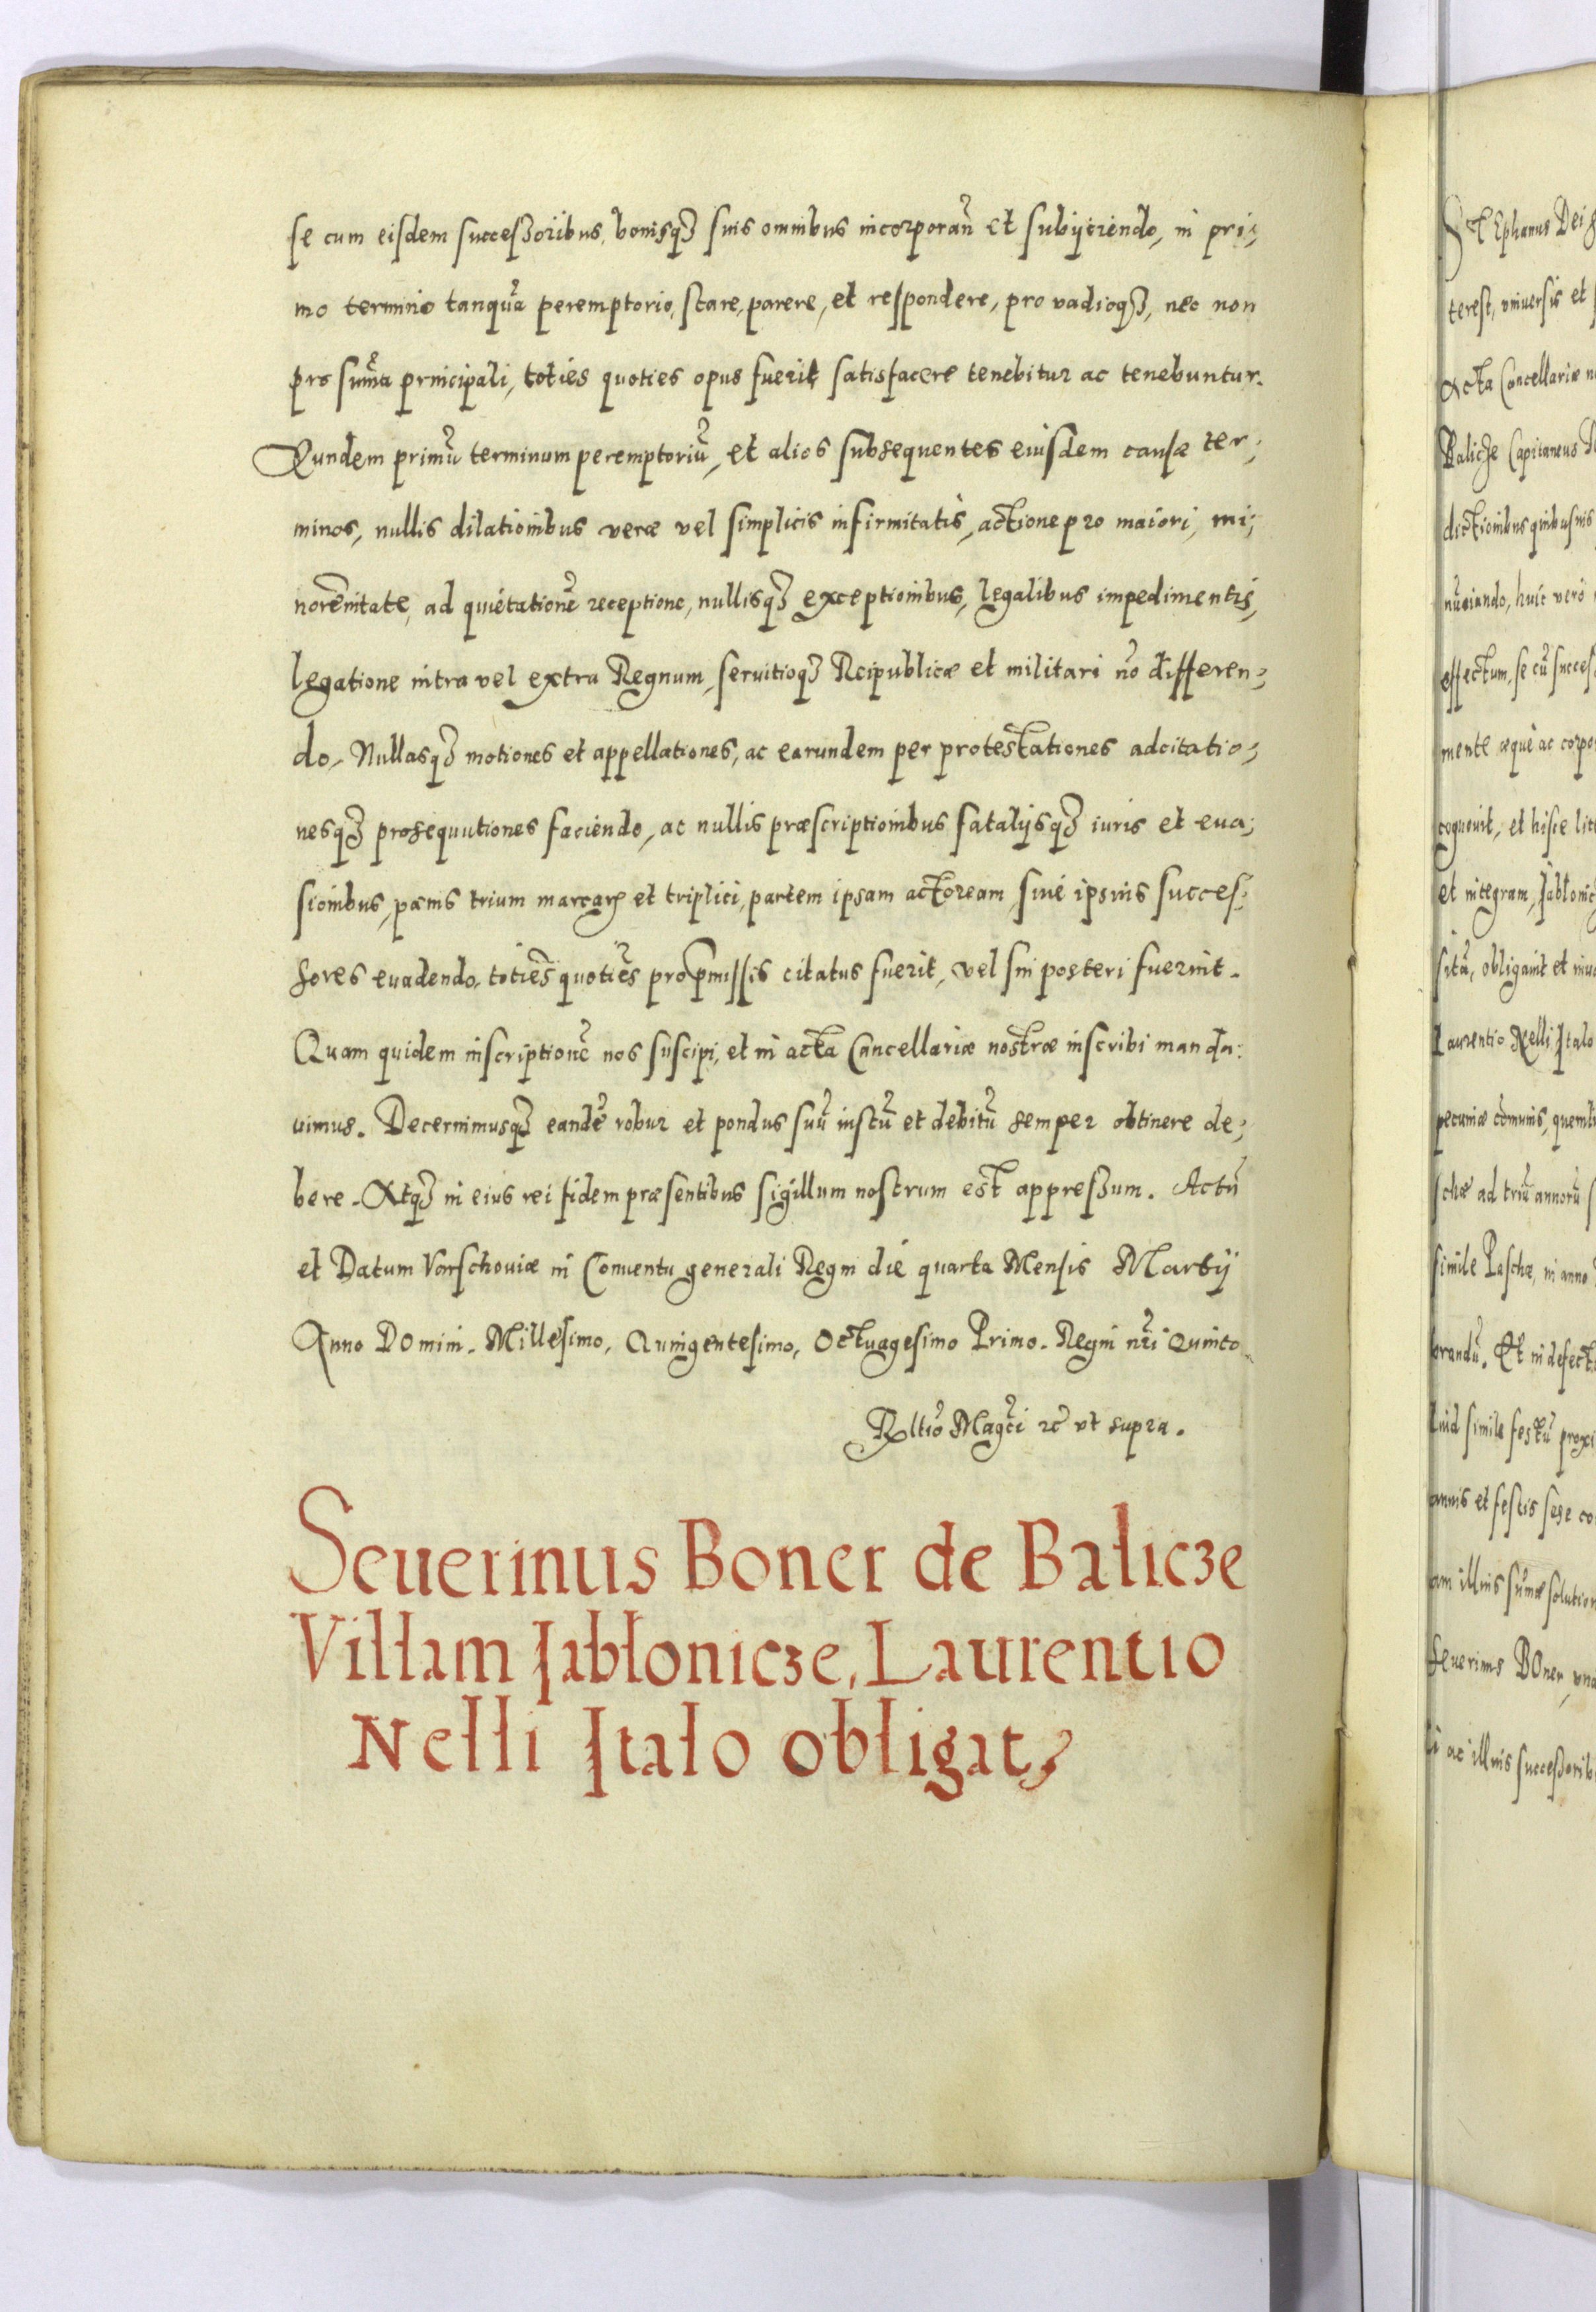 se cum eisdem successoribus, bonisq3 suis omnibus incorporañ et subijciendo, in pri-
mo termino tanquã peremptorio, stare, parere, et respondere, pro vadioq3, nec non
pro sum̃a principali, toties quoties opus fuerit satisfacere tenebitur ac tenebuntur.
Eundem primũ terminum peremptoriũ, et alios subsequentes eiusdem causæ ter-
minos, nullis dilationibus veræ vel simplicis infirmitatis, actione pro maiori, mi-
norennitate, ad quietationẽ receptione, nullisq3 exceptionibus, legalibus impedimentis,
legatione intra vel extra Regnum, seruitioq3 Reipublicæ et militari nõ differen-
do, Nullasq3 motiones et appellationes, ac earundem per protestationes adcitatio-
nesq3 prosequutiones faciendo, ac nullis præscriptionibus fatalijsq3 iuris et eua-
sionibus, pœnis trium marcarꝝ et triplici, partem ipsam actoream, siue ipsius succes-
sores euadendo, toties quoties pro p̃missis citatus fuerit, vel sui posteri fuerint.
Quam quidem inscriptionẽ nos suscipi, et in acta Cancellariæ nostræ inscribi manda-
uimus. Decernimusq3 eandẽ robur et pondus suũ iustũ et debitũ semper obtinere de-
bere. Atq3 in eius rei fidem præsentibus sigillum nostrum est appressum. Actũ
et Datum Varschouiæ in Conuentu generali Regni die quarta Mensis Martij
Anno Domini. Millesimo, Quingentesimo, Octuagesimo Primo. Regni nr̃i Quinto
Rltiõ Magc̃i rc̃ vt supra.
Seuerinus Boner de Balicze
Villam Jabłonicze, Laurentio
Nelli Italo obligat,
St Ephanus Dei
terest, vniuersis et
Acta Cancellariæ
Balicze Capitaneus
dictionibus quibusuis
nũciando, huic vero
effectum, se cũ succes
mente æque ac corpo
cognouit, et hisce lit
et integram, Jabłonic
sitã, obligauit et
Laurentio Nelli Italo
pecuniæ comunis, quemli
schæ ad triũ annorũ
simile Paschæ, in anno
brandũ. Et in defect
liud simile festũ proxi
annis et festis sese co
am illius sum̃æ solution
Seuerinus BOner, vna
li ac illius successorib